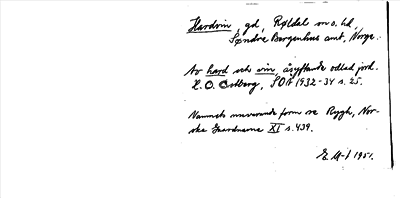 Hardvin, gd, Røldal sn o. hd,
Søndre Bergenhus amt, Norge.
Av hard och vin, åsyftande odlad jord.
H. O. Östberg, SOÅ 1932-34 s. 25.
Namnets nuvarande form se Rygh, Nor-
ske Gaardnavne XI s. 439.
E. M-l 1951.